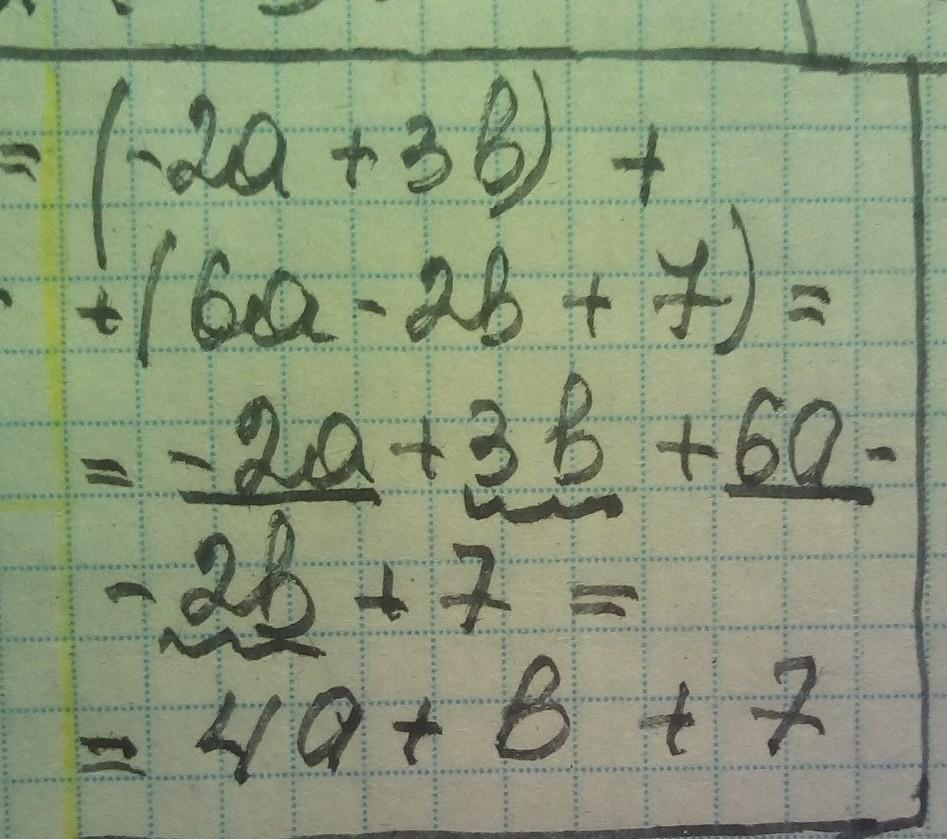 = (-2a + 3b) +
+ (6a - 2b + 7) =
= -2a + 3b + 6a -
- 2b + 7 =
= 4a + b + 7